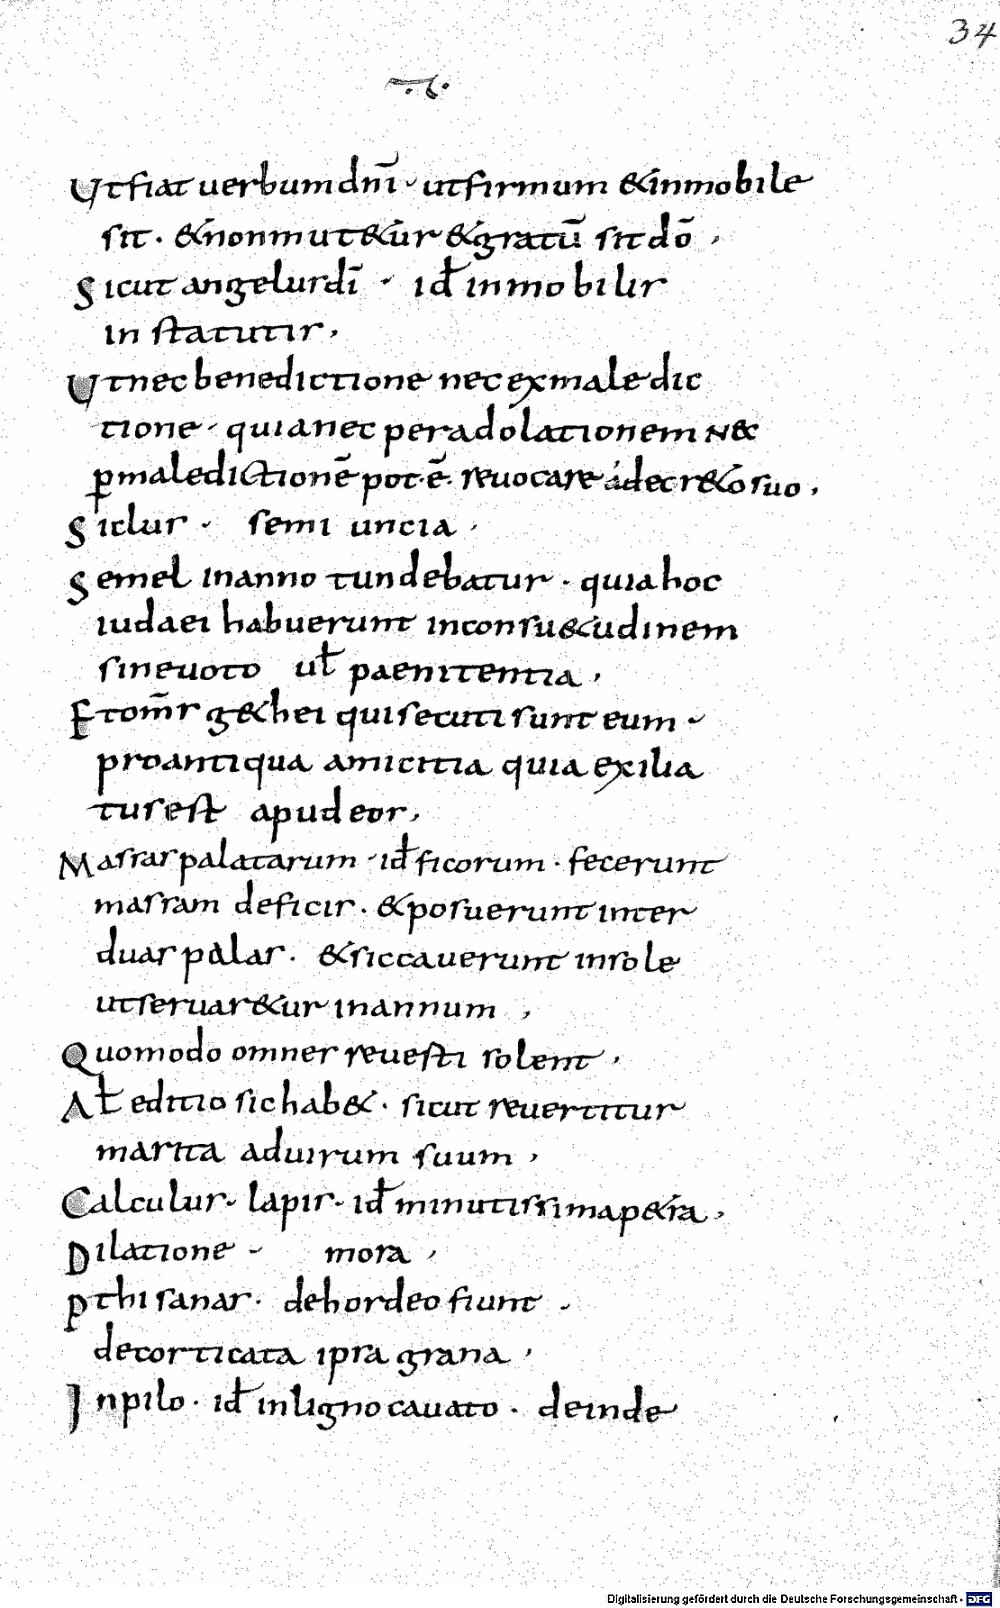 34
Ut fiat uerbum dnī · ut firmum & inmobile
sit · & non mut&ur & gratū sit dō ,
Sicut angelus dī · id̄ inmobilis
in statutis ,
Ut nec benedictione nec ex maledic
tione · quia nec per adolationem nec
p̱ maledictionē pot ē · reuocare a decr&o suo ,
Siclus · semi uncia ,
Semel in anno tundebatur · quia hoc
iudaei habuerunt in consu&udinem
sine uoto ul̄ paenitentia ,
Et om̄s g&hei qui secuti sunt eum ·
pro antiqua amicitia quia exilia
tus est apud eos ,
Massas palatarum · id̄ ficorum · fecerunt
massam de ficis · & posuerunt inter
duas palas · & siccauerunt in sole
ut seruar&ur in annum ,
Quomodo omnes reuesti solent ,
Al̄ editio sic hab& · sicut reuertitur
marita ad uirum suum ,
Calculus · lapis · id̄ minutissima p&ra ,
Dilatione · mora ,
Pthisanas · de hordeo fiunt ·
decorticata ipsa grana ,
In pilo · id̄ in ligno cauato · deinde
Digitalisierung gefördert durch die Deutsche Forschungsgemeinschaft - DFG